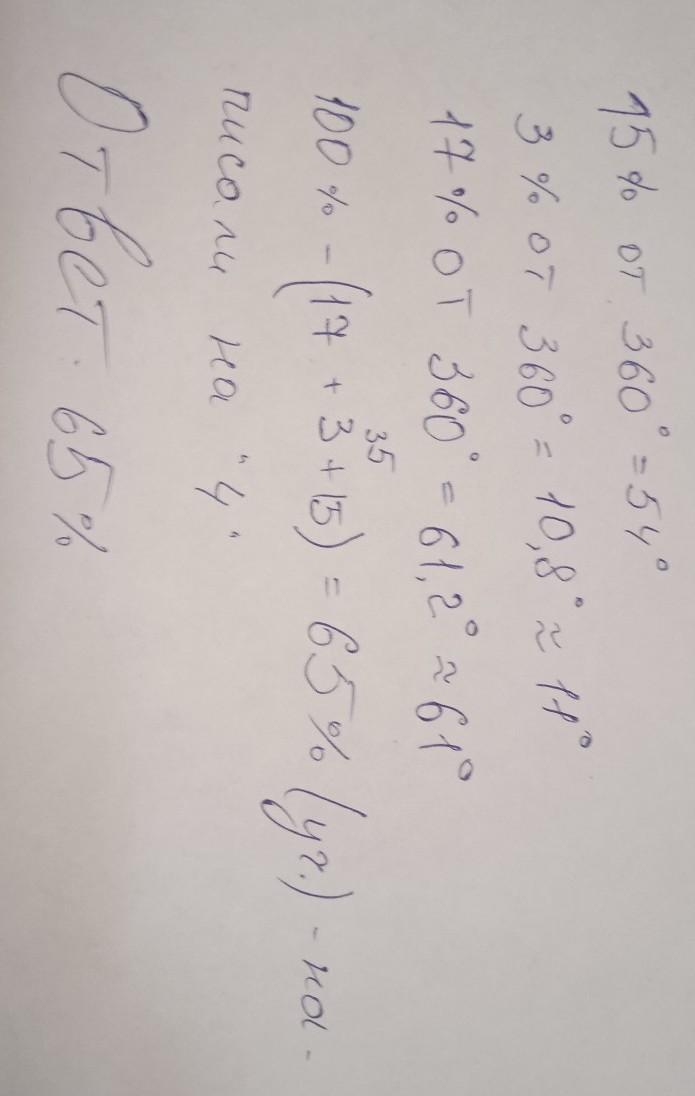 15% от 360° = 54°
3% от 360° = 10,8° ≈ 11°
17% от 360° = 61,2° ≈ 61°
35
100% - (17 + 3 + 15) = 65% (уч.) - на-
писали на "4"
Ответ. 65%